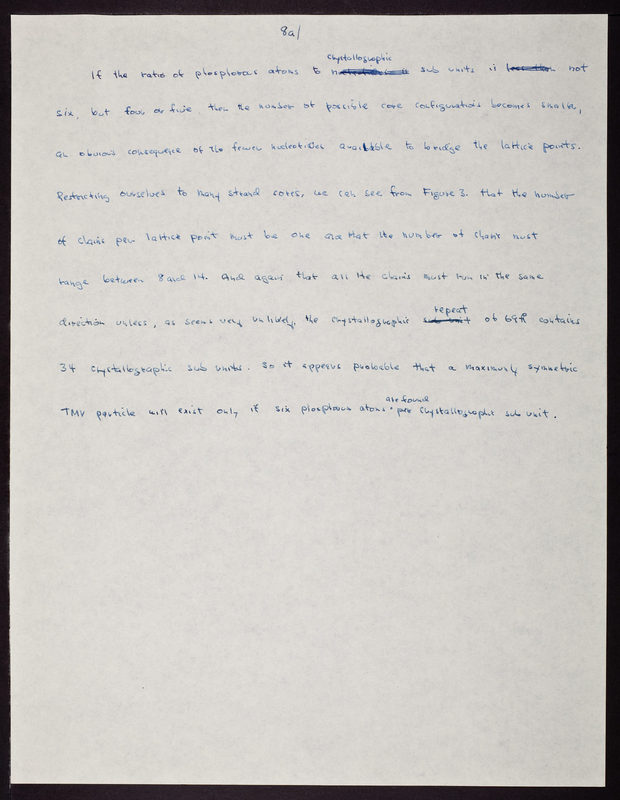 8a/
Crystallographic
If the ratio of phosphorous atoms to sub units is not
six, but four or five then the number of possible core configurations becomes smaller,
an obvious consequence of the fewer nucleotides available to bridge the lattice points.
Restricting ourselves to many strand cores, we can see from Figure 3. that the number
of chains per lattice point must be one and that the number of chains must
range between 8 and 14. And again that all the chains must run in the same
repeat
direction unless, as seems very unlikely, the crystallographic sub unit of 69Å contains
34 crystallographic sub units. So it appears probable that a maximumly symmetric
are found
TMV particle will exist only if six phosphorus atoms per crystallographic sub unit.